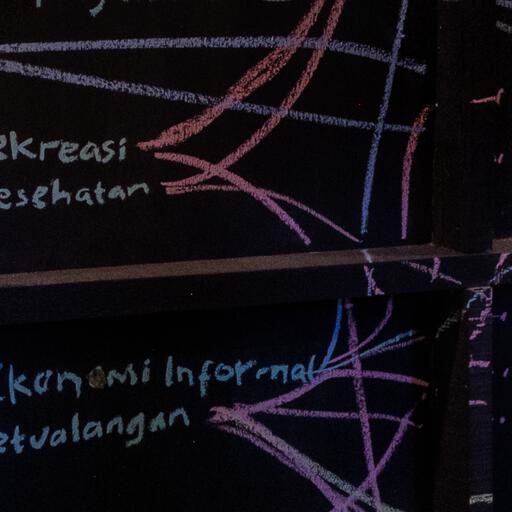 ekreasi
esehatan
Ekonomi Informal
etualangan